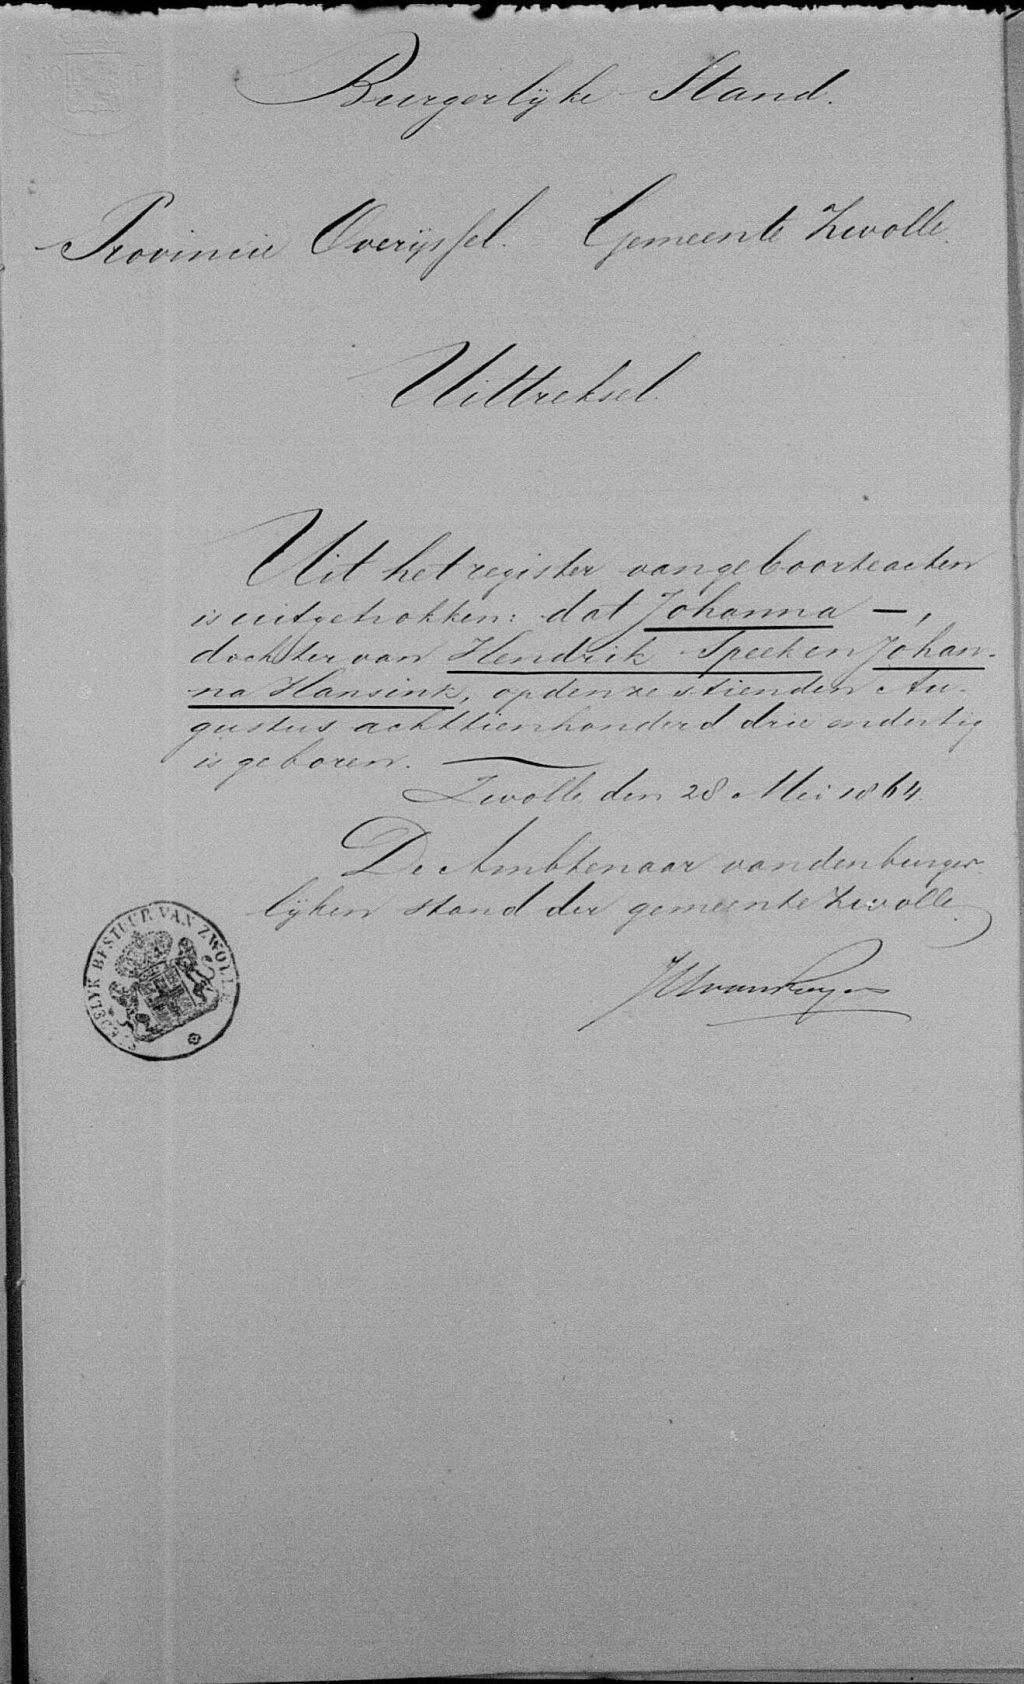 Burgerlijke Stand.
Provincie Overijssel. Gemeente Zwolle.
Uittreksel.
Uit het register van geboorteacten
is uitgetrokken: dat Johanna —,
dochter van Hendrik Speek en Johan-
na Hansink, op den zestienden Au-
gustus achttienhonderd drie en dertig
is geboren. —
Zwolle, den 28 Mei 1864.
De Ambtenaar van den burger-
lijken stand der gemeente Zwolle.
BESTUUR VAN ZWOLLE